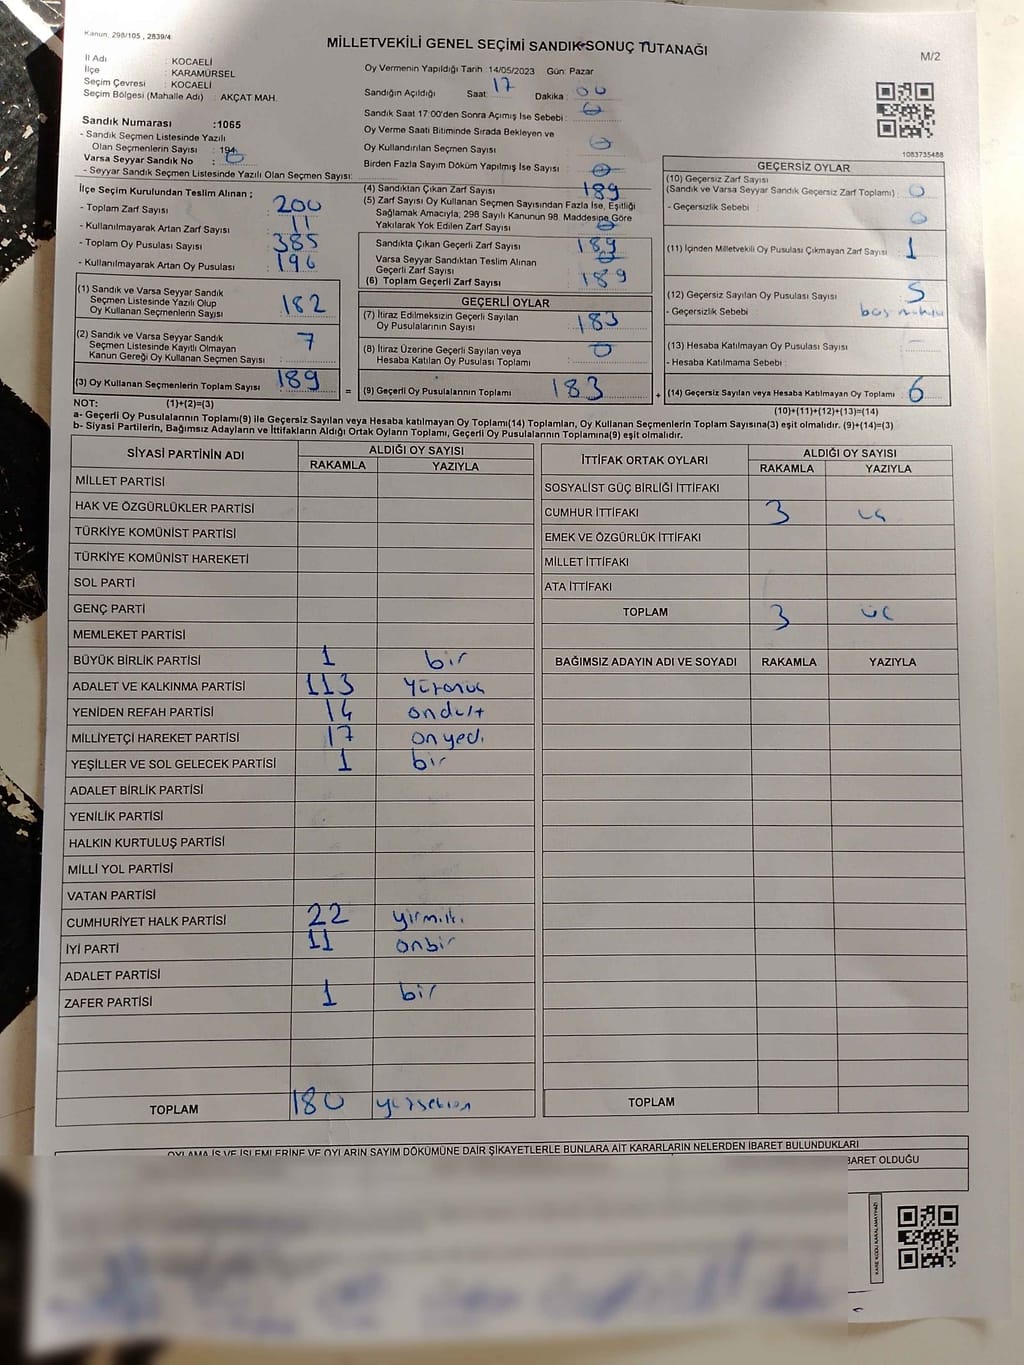 Kanun, 298/105 , 2839/4
MİLLETVEKİLİ GENEL SEÇİMİ SANDIK SONUÇ TUTANAĞI
M/2
İl Adı : KOCAELİ
İlçe : KARAMÜRSEL
Seçim Çevresi : KOCAELİ
Seçim Bölgesi (Mahalle Adı) : AKÇAT MAH.
Sandık Numarası :1065
- Sandık Seçmen Listesinde Yazılı
Olan Seçmenlerin Sayısı : 194
Varsa Seyyar Sandık No : 0
- Seyyar Sandık Seçmen Listesinde Yazılı Olan Seçmen Sayısı:
Oy Vermenin Yapıldığı Tarih :14/05/2023 Gün: Pazar
Sandığın Açıldığı Saat: 17 Dakika : 00
Sandık Saat 17:00'den Sonra Açımış İse Sebebi : 0
Oy Verme Saati Bitiminde Sırada Bekleyen ve
Oy Kullandırılan Seçmen Sayısı : 0
Birden Fazla Sayım Döküm Yapılmış İse Sayısı : 0
1083735488
İlçe Seçim Kurulundan Teslim Alınan ;
- Toplam Zarf Sayısı : 200
- Kullanılmayarak Artan Zarf Sayısı : 11
- Toplam Oy Pusulası Sayısı : 385
- Kullanılmayarak Artan Oy Pusulası : 196
(1) Sandık ve Varsa Seyyar Sandık
Seçmen Listesinde Yazılı Olup
Oy Kullanan Seçmenlerin Sayısı : 182
(2) Sandık ve Varsa Seyyar Sandık
Seçmen Listesinde Kayıtlı Olmayan
Kanun Gereği Oy Kullanan Seçmen Sayısı : 7
(3) Oy Kullanan Seçmenlerin Toplam Sayısı : 189 =
(4) Sandıktan Çıkan Zarf Sayısı : 189
(5) Zarf Sayısı Oy Kullanan Seçmen Sayısından Fazla İse, Eşitliği
Sağlamak Amacıyla, 298 Sayılı Kanunun 98. Maddesine Göre
Yakılarak Yok Edilen Zarf Sayısı : 0
Sandıkta Çıkan Geçerli Zarf Sayısı : 189
Varsa Seyyar Sandıktan Teslim Alınan
Geçerli Zarf Sayısı : 0
(6) Toplam Geçerli Zarf Sayısı : 189
GEÇERLİ OYLAR
(7) İtiraz Edilmeksizin Geçerli Sayılan
Oy Pusulalarının Sayısı : 183
(8) İtiraz Üzerine Geçerli Sayılan veya
Hesaba Katılan Oy Pusulası Toplamı : 0
(9) Geçerli Oy Pusulalarının Toplamı : 183 +
GEÇERSİZ OYLAR
(10) Geçersiz Zarf Sayısı
(Sandık ve Varsa Seyyar Sandık Geçersiz Zarf Toplamı) : 0
- Geçersizlik Sebebi : 0
(11) İçinden Milletvekili Oy Pusulası Çıkmayan Zarf Sayısı : 1
(12) Geçersiz Sayılan Oy Pusulası Sayısı : 5
- Geçersizlik Sebebi :
(13) Hesaba Katılmayan Oy Pusulası Sayısı : -
- Hesaba Katılmama Sebebi :
(14) Geçersiz Sayılan veya Hesaba Katılmayan Oy Toplamı : 6
NOT: (1)+(2)=(3)
(10)+(11)+(12)+(13)=(14)
a- Geçerli Oy Pusulalarının Toplamı(9) ile Geçersiz Sayılan veya Hesaba katılmayan Oy Toplamı(14) Toplamları, Oy Kullanan Seçmenlerin Toplam Sayısına(3) eşit olmalıdır. (9)+(14)=(3)
b- Siyasi Partilerin, Bağımsız Adayların ve İttifakların Aldığı Ortak Oyların Toplamı, Geçerli Oy Pusulalarının Toplamına(9) eşit olmalıdır.
SİYASİ PARTİNİN ADI ALDIĞI OY SAYISI
RAKAMLA YAZIYLA
MİLLET PARTİSİ
HAK VE ÖZGÜRLÜKLER PARTİSİ
TÜRKİYE KOMÜNİST PARTİSİ
TÜRKİYE KOMÜNİST HAREKETİ
SOL PARTİ
GENÇ PARTİ
MEMLEKET PARTİSİ
BÜYÜK BİRLİK PARTİSİ 1 bir
ADALET VE KALKINMA PARTİSİ 113
YENİDEN REFAH PARTİSİ 14 ondört
MİLLİYETÇİ HAREKET PARTİSİ 17 onyedi
YEŞİLLER VE SOL GELECEK PARTİSİ 1 bir
ADALET BİRLİK PARTİSİ
YENİLİK PARTİSİ
HALKIN KURTULUŞ PARTİSİ
MİLLİ YOL PARTİSİ
VATAN PARTİSİ
CUMHURİYET HALK PARTİSİ 22
İYİ PARTİ 11 onbir
ADALET PARTİSİ
ZAFER PARTİSİ 1 bir
TOPLAM 180 yüzseksen
İTTİFAK ORTAK OYLARI ALDIĞI OY SAYISI
RAKAMLA YAZIYLA
SOSYALİST GÜÇ BİRLİĞİ İTTİFAKI
CUMHUR İTTİFAKI 3 üç
EMEK VE ÖZGÜRLÜK İTTİFAKI
MİLLET İTTİFAKI
ATA İTTİFAKI
TOPLAM 3 üç
BAĞIMSIZ ADAYIN ADI VE SOYADI RAKAMLA YAZIYLA
TOPLAM
OYLAMA İŞ VE İŞLEMLERİNE VE OYLARIN SAYIM DÖKÜMÜNE DAİR ŞİKAYETLERLE BUNLARA AİT KARARLARIN NELERDEN İBARET BULUNDUKLARI
BARET OLDUĞU
KARE KODU KARALAMAYINIZ!